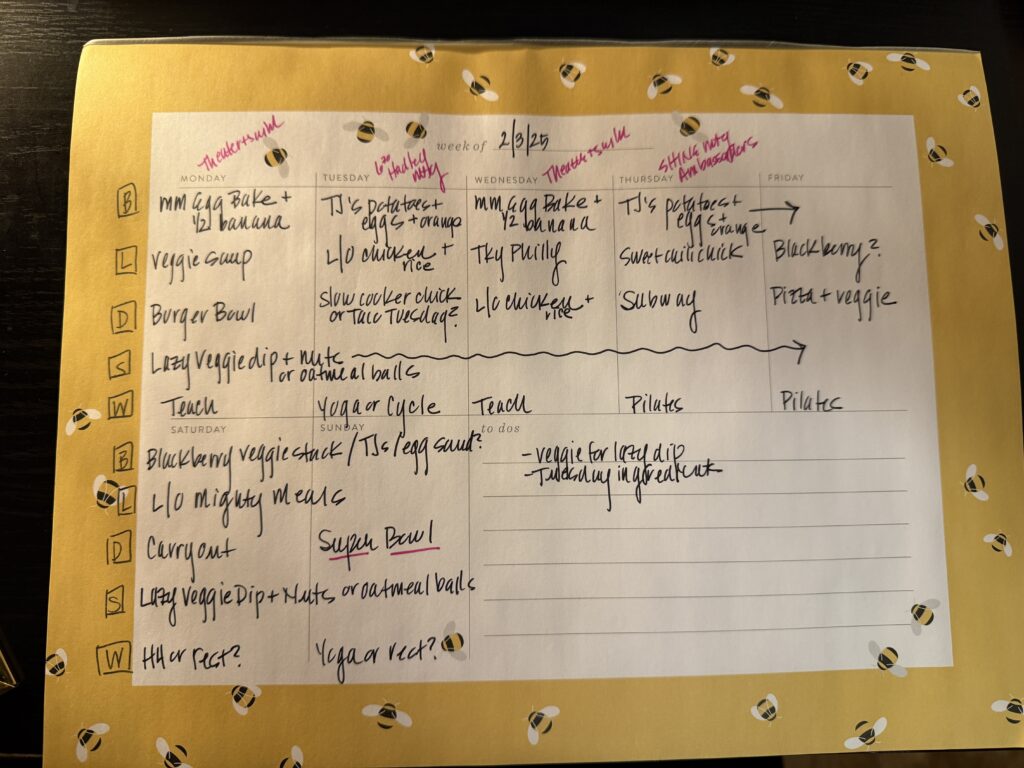 week of 2/3/25
Theater + swim
6:30 Hadley mtg
Theater + swim
SHINE mtg
Ambassadors
MONDAY TUESDAY WEDNESDAY THURSDAY FRIDAY
B
MM Egg Bake +
1/2 banana
TJ's potatoes +
eggs + orange
MM Egg Bake +
1/2 banana
TJ's potatoes +
eggs +
orange
L
Veggie soup
L/O chicken +
rice
Tky Philly
Sweet chili chick
Blackberry?
D
Burger Bowl
Slow cooker chick
or Taco Tuesday?
L/O chicken +
rice
Subway
Pizza + veggie
S
Lazy Veggie dip + nuts
or oatmeal balls
W
Teach
Yoga or Cycle
Teach
Pilates
Pilates
SATURDAY SUNDAY to dos
B
Blackberry veggie stack / TJs / egg sand?
L
L/O Mighty Meals
D
Carryout
Super Bowl
S
Lazy Veggie Dip + Nuts or oatmeal balls
W
HH or rest?
Yoga or rest?
- veggie for lazy dip
- Tuesday ingredient